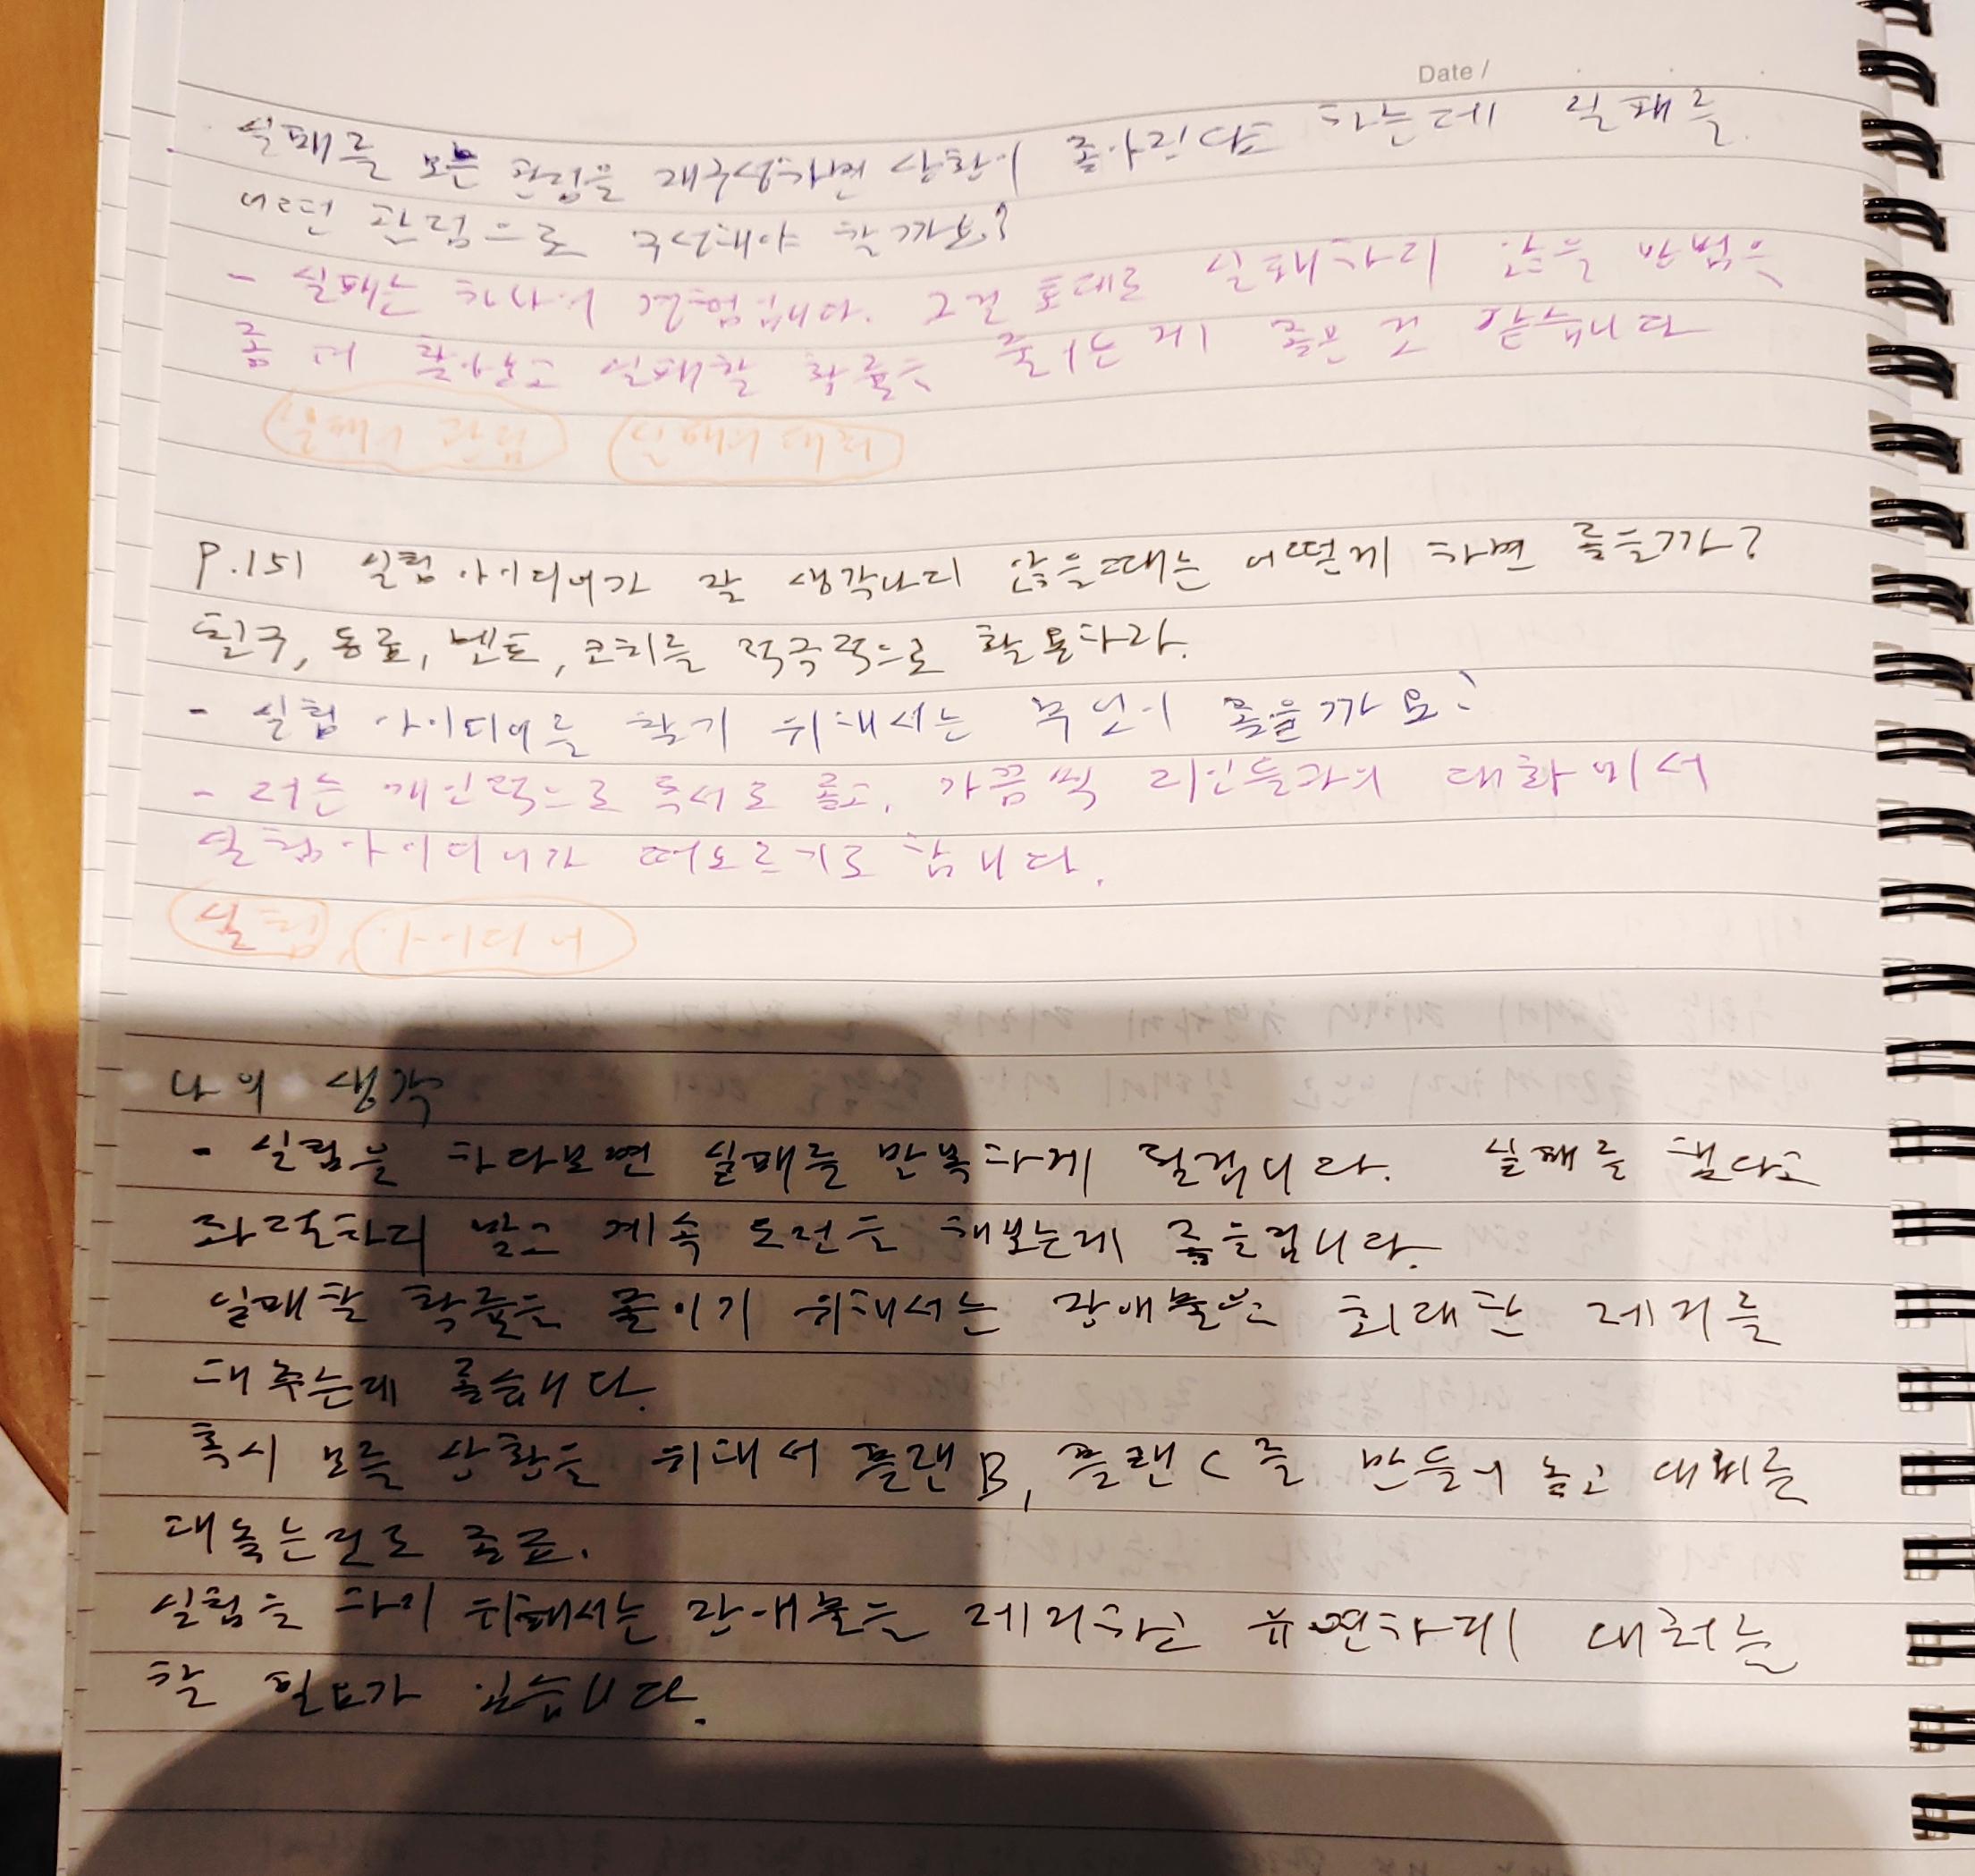 Date /
실패를 보는 관점을 재구성하면 상황이 좋아진다고 하는데 실패를
어떤 관점으로 구성해야 할까요?
- 실패는 하나의 경험입니다. 그걸 토대로 실패하지 않을 방법을
좀 더 찾아보고 실패할 확률을 줄이는게 좋은 것 같습니다
실패의 관점 실패의 대처
P.151 실험 아이디어가 잘 생각나지 않을때는 어떻게 하면 좋을까?
친구, 동료, 멘토, 코치를 적극적으로 활용하라.
- 실험 아이디어를 찾기 위해서는 무엇이 좋을까요?
- 저는 개인적으로 독서도 좋고, 가끔씩 지인들과의 대화에서
실험아이디어가 떠오르기도 합니다.
실험, 아이디어
나의 생각
- 실험을 하다보면 실패를 반복하게 될겁니다. 실패를 했다고
좌절하지 말고 계속 도전을 해보는게 좋을겁니다.
실패할 확률을 줄이기 위해서는 장애물을 최대한 제거를
해주는게 좋습니다.
혹시 모를 상황을 위해서 플랜B, 플랜C를 만들어 놓고 대비를
해놓는것도 좋죠.
실험을 하기 위해서는 장애물을 제거하고 유연하게 대처를
할 필요가 있습니다.